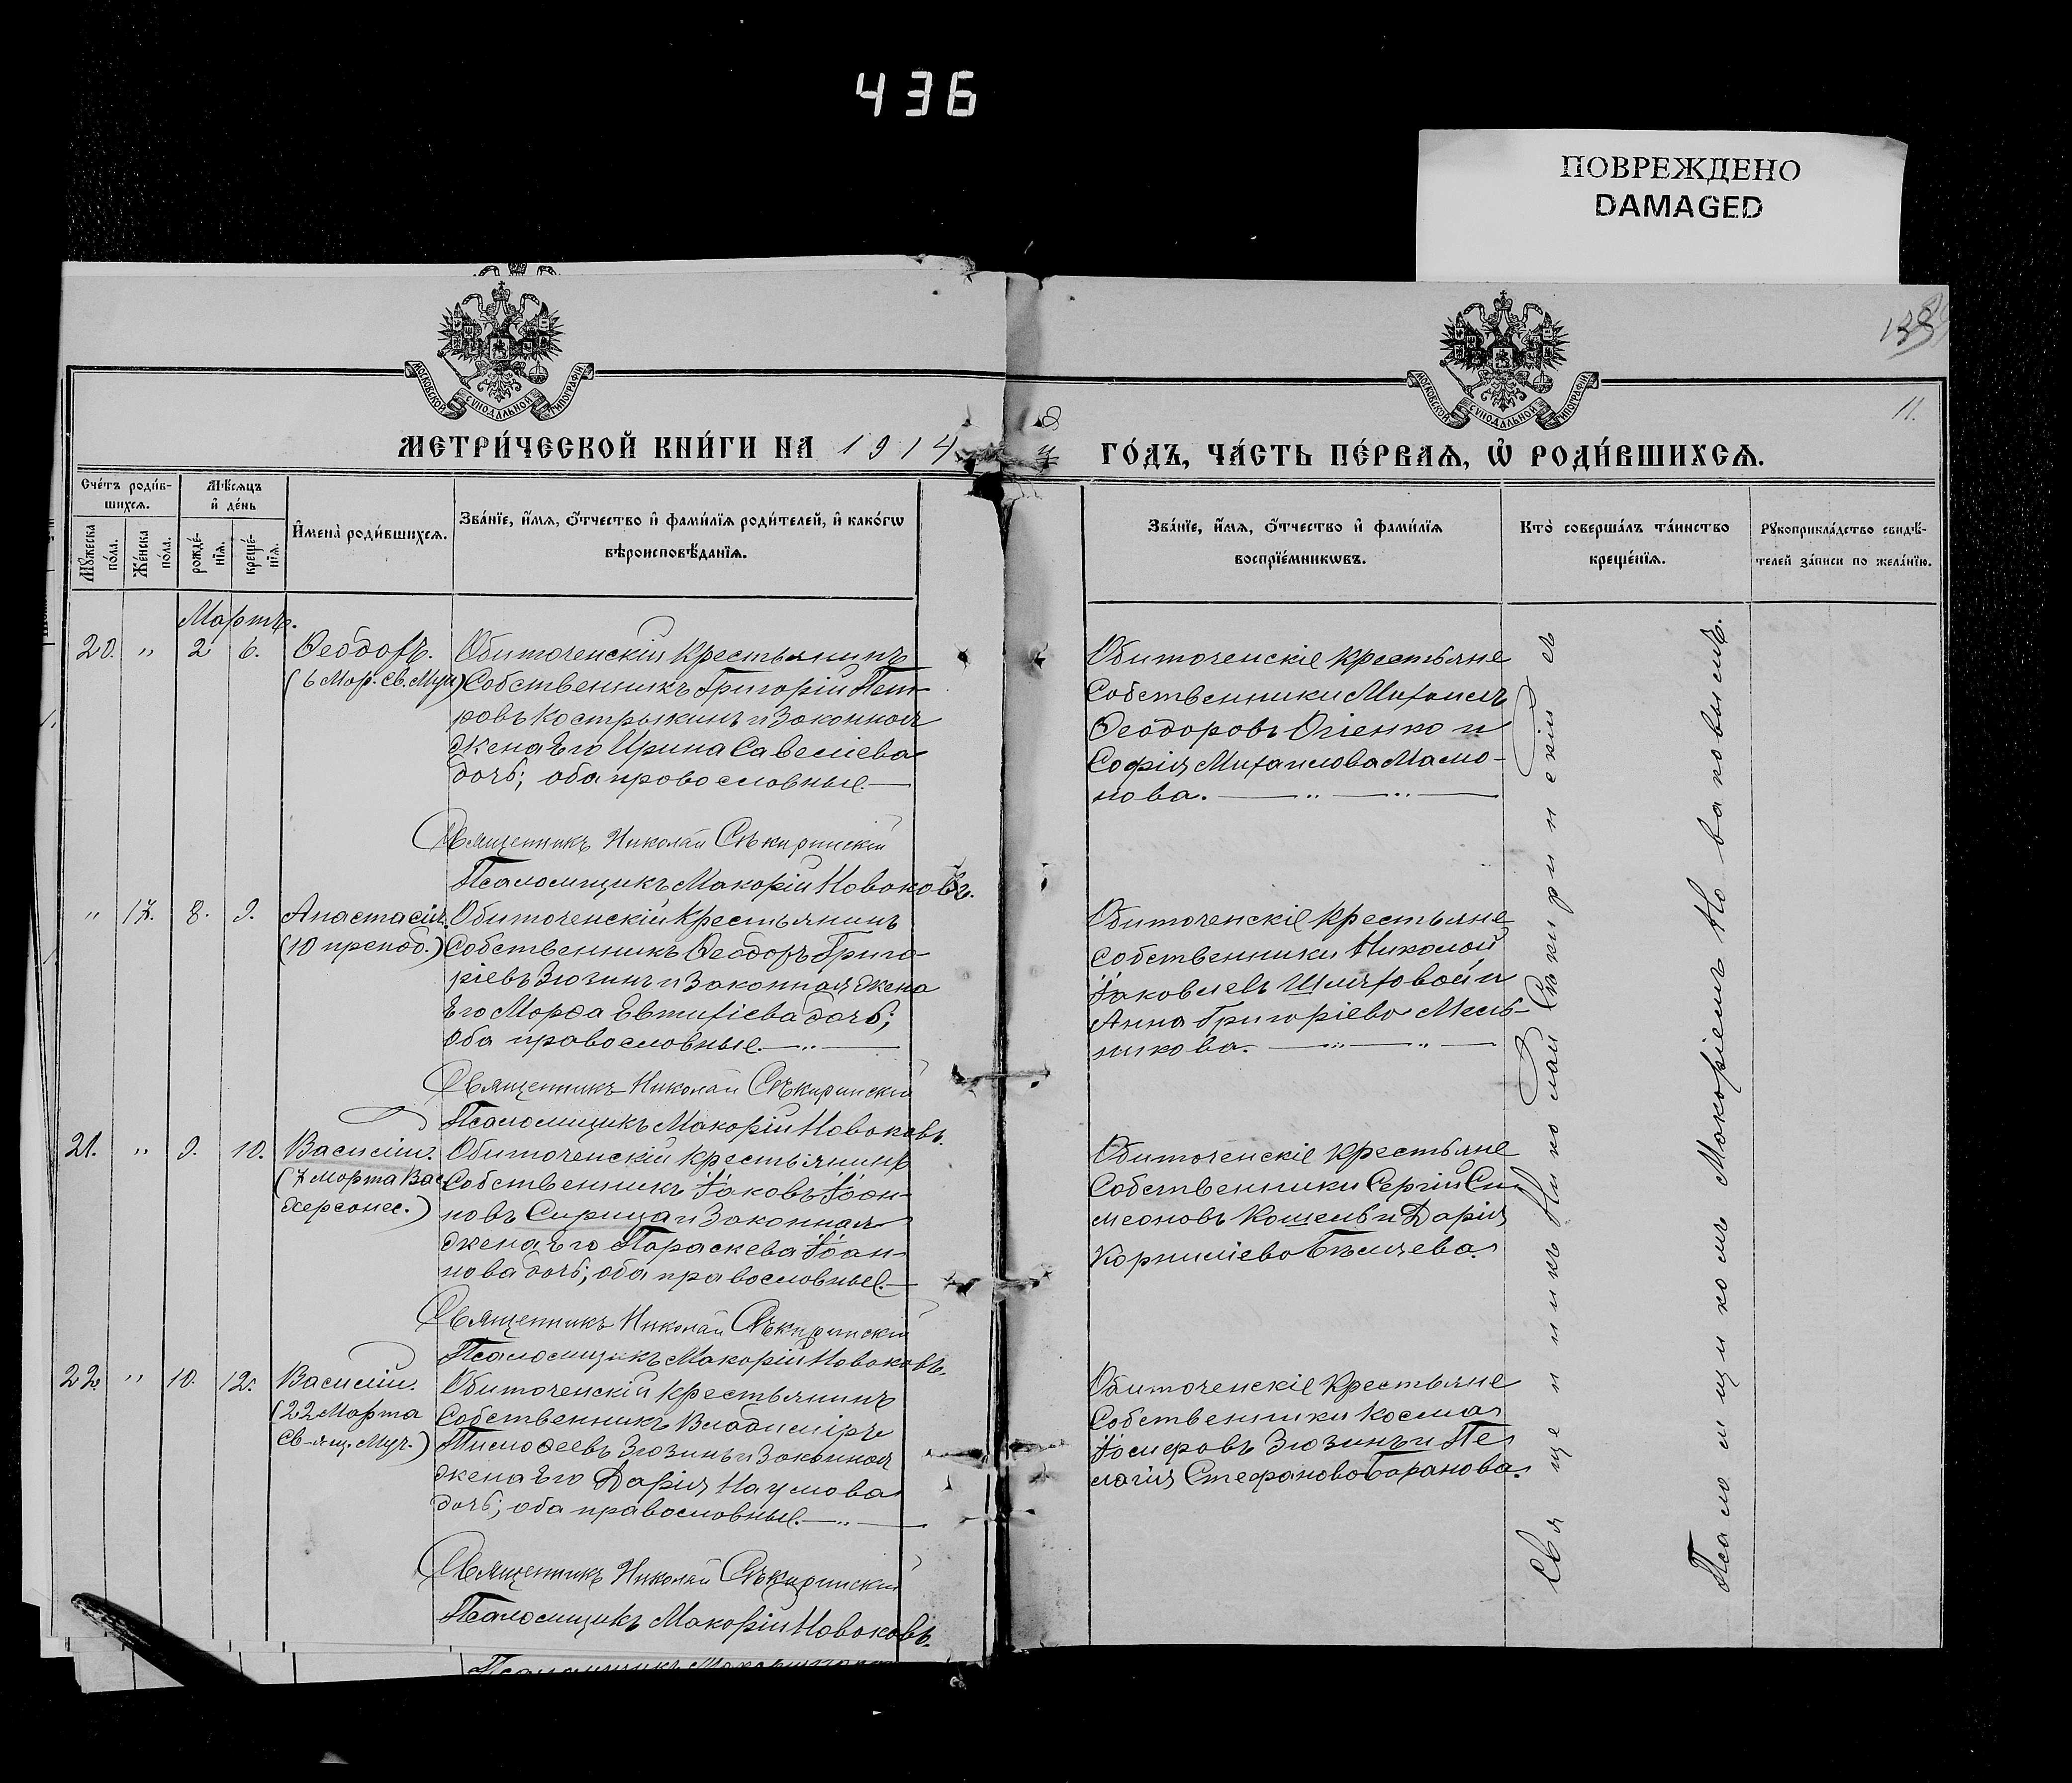 436
ПОВРЕЖДЕНО
DAMAGED
138
11.
МОСКОВСКОЙ СУНОДАЛЬНОЙ ТИПОГРАФІИ
МОСКОВСКОЙ СУНОДАЛЬНОЙ ТИПОГРАФІИ
МЕТРИ́ЧЕСКОЙ КНИ́ГИ НА 1914
ГО́ДЪ, ЧА́СТЬ ПЕ́РВАЯ, Ѡ҆ РОДИ́ВШИХСЯ.
Сче́тъ роди́в-
шихся.
Мѣ́сяцъ
и҆ де́нь
Мꙋ́жеска
по́ла.
Же́нска
по́ла.
рожде́-
нїя.
креще́-
нїя.
И҆мена̀ роди́вшихся.
Зва́нїе, и҆́мя, ѻ҆́тчество и҆ фами́лїя роди́телей, и҆ како́гѡ
вѣроисповѣ́данїя.
Зва́нїе, и҆́мя, ѻ҆́тчество и҆ фами́лїя
воспрїе́мникѡвъ.
Кто̀ соверша́лъ та́инство
креще́нїя.
Рꙋкоприкла́дство свидѣ́-
телей за́писи по жела́нїю.
Мартъ.
20. " 2 6. Ѳеодоръ.
(6 Мар. Св. Муч)
Обиточенскій крестьянинъ
Собственникъ Григорій Пет-
ровъ Кострыкинъ и Законная
жена Его Ирина Савеліева
дочь; оба православные.
Священникъ Николай Сѣкиринскій
Псаломщикъ Макарій Новаковъ.
Обиточенскіе крестьяне
Собственники Михаилъ
Ѳеодоровъ Огіенко и
Софія Михаилова Мамо-
нова.
" 17. 8. 9. Анастасія.
(10 препод.)
Обиточенскій крестьянинъ
Собственникъ Ѳеодоръ Григо-
ріевъ Зюзинъ и Законная жена
Его Марѳа Евтихіева дочь;
оба православные.
Священникъ Николай Сѣкиринскій
Псаломщикъ Макарій Новаковъ.
Обиточенскіе крестьяне
собственники Николай
Іаковлевъ Шляховой и
Анна Григоріева Мель-
никова.
21. " 9. 10. Василій.
(7 марта Вас.
Херсонес.)
Обиточенскій крестьянинъ
Собственникъ Іаковъ Іоан-
новъ Сирица и Законная
жена Его Параскева Іоан-
нова дочь; оба православные.
Священникъ Николай Сѣкиринскій
Псаломщикъ Макарій Новаковъ.
Обиточенскіе крестьяне
Собственники Сергій Си-
меоновъ Кошель и Дарія
Корниліева Бѣляева.
22. " 10. 12. Василій.
(22 Марта
Св-ящ. Муч.)
Обиточенскій крестьянинъ
Собственникъ Владиміръ
Тимоѳеевъ Зюзинъ и Законная
жена Его Дарія Наумова
дочь; оба православные.
Священникъ Николай Сѣкиринскій
Псаломщикъ Макарій Новаковъ.
Обиточенскіе крестьяне
Собственники Косма
Іосифовъ Зюзинъ и Пе-
лагія Стефанова Баранова.
Священникъ Николай Сѣкиринскій съ
Псаломщикомъ Макаріемъ Новаковымъ.